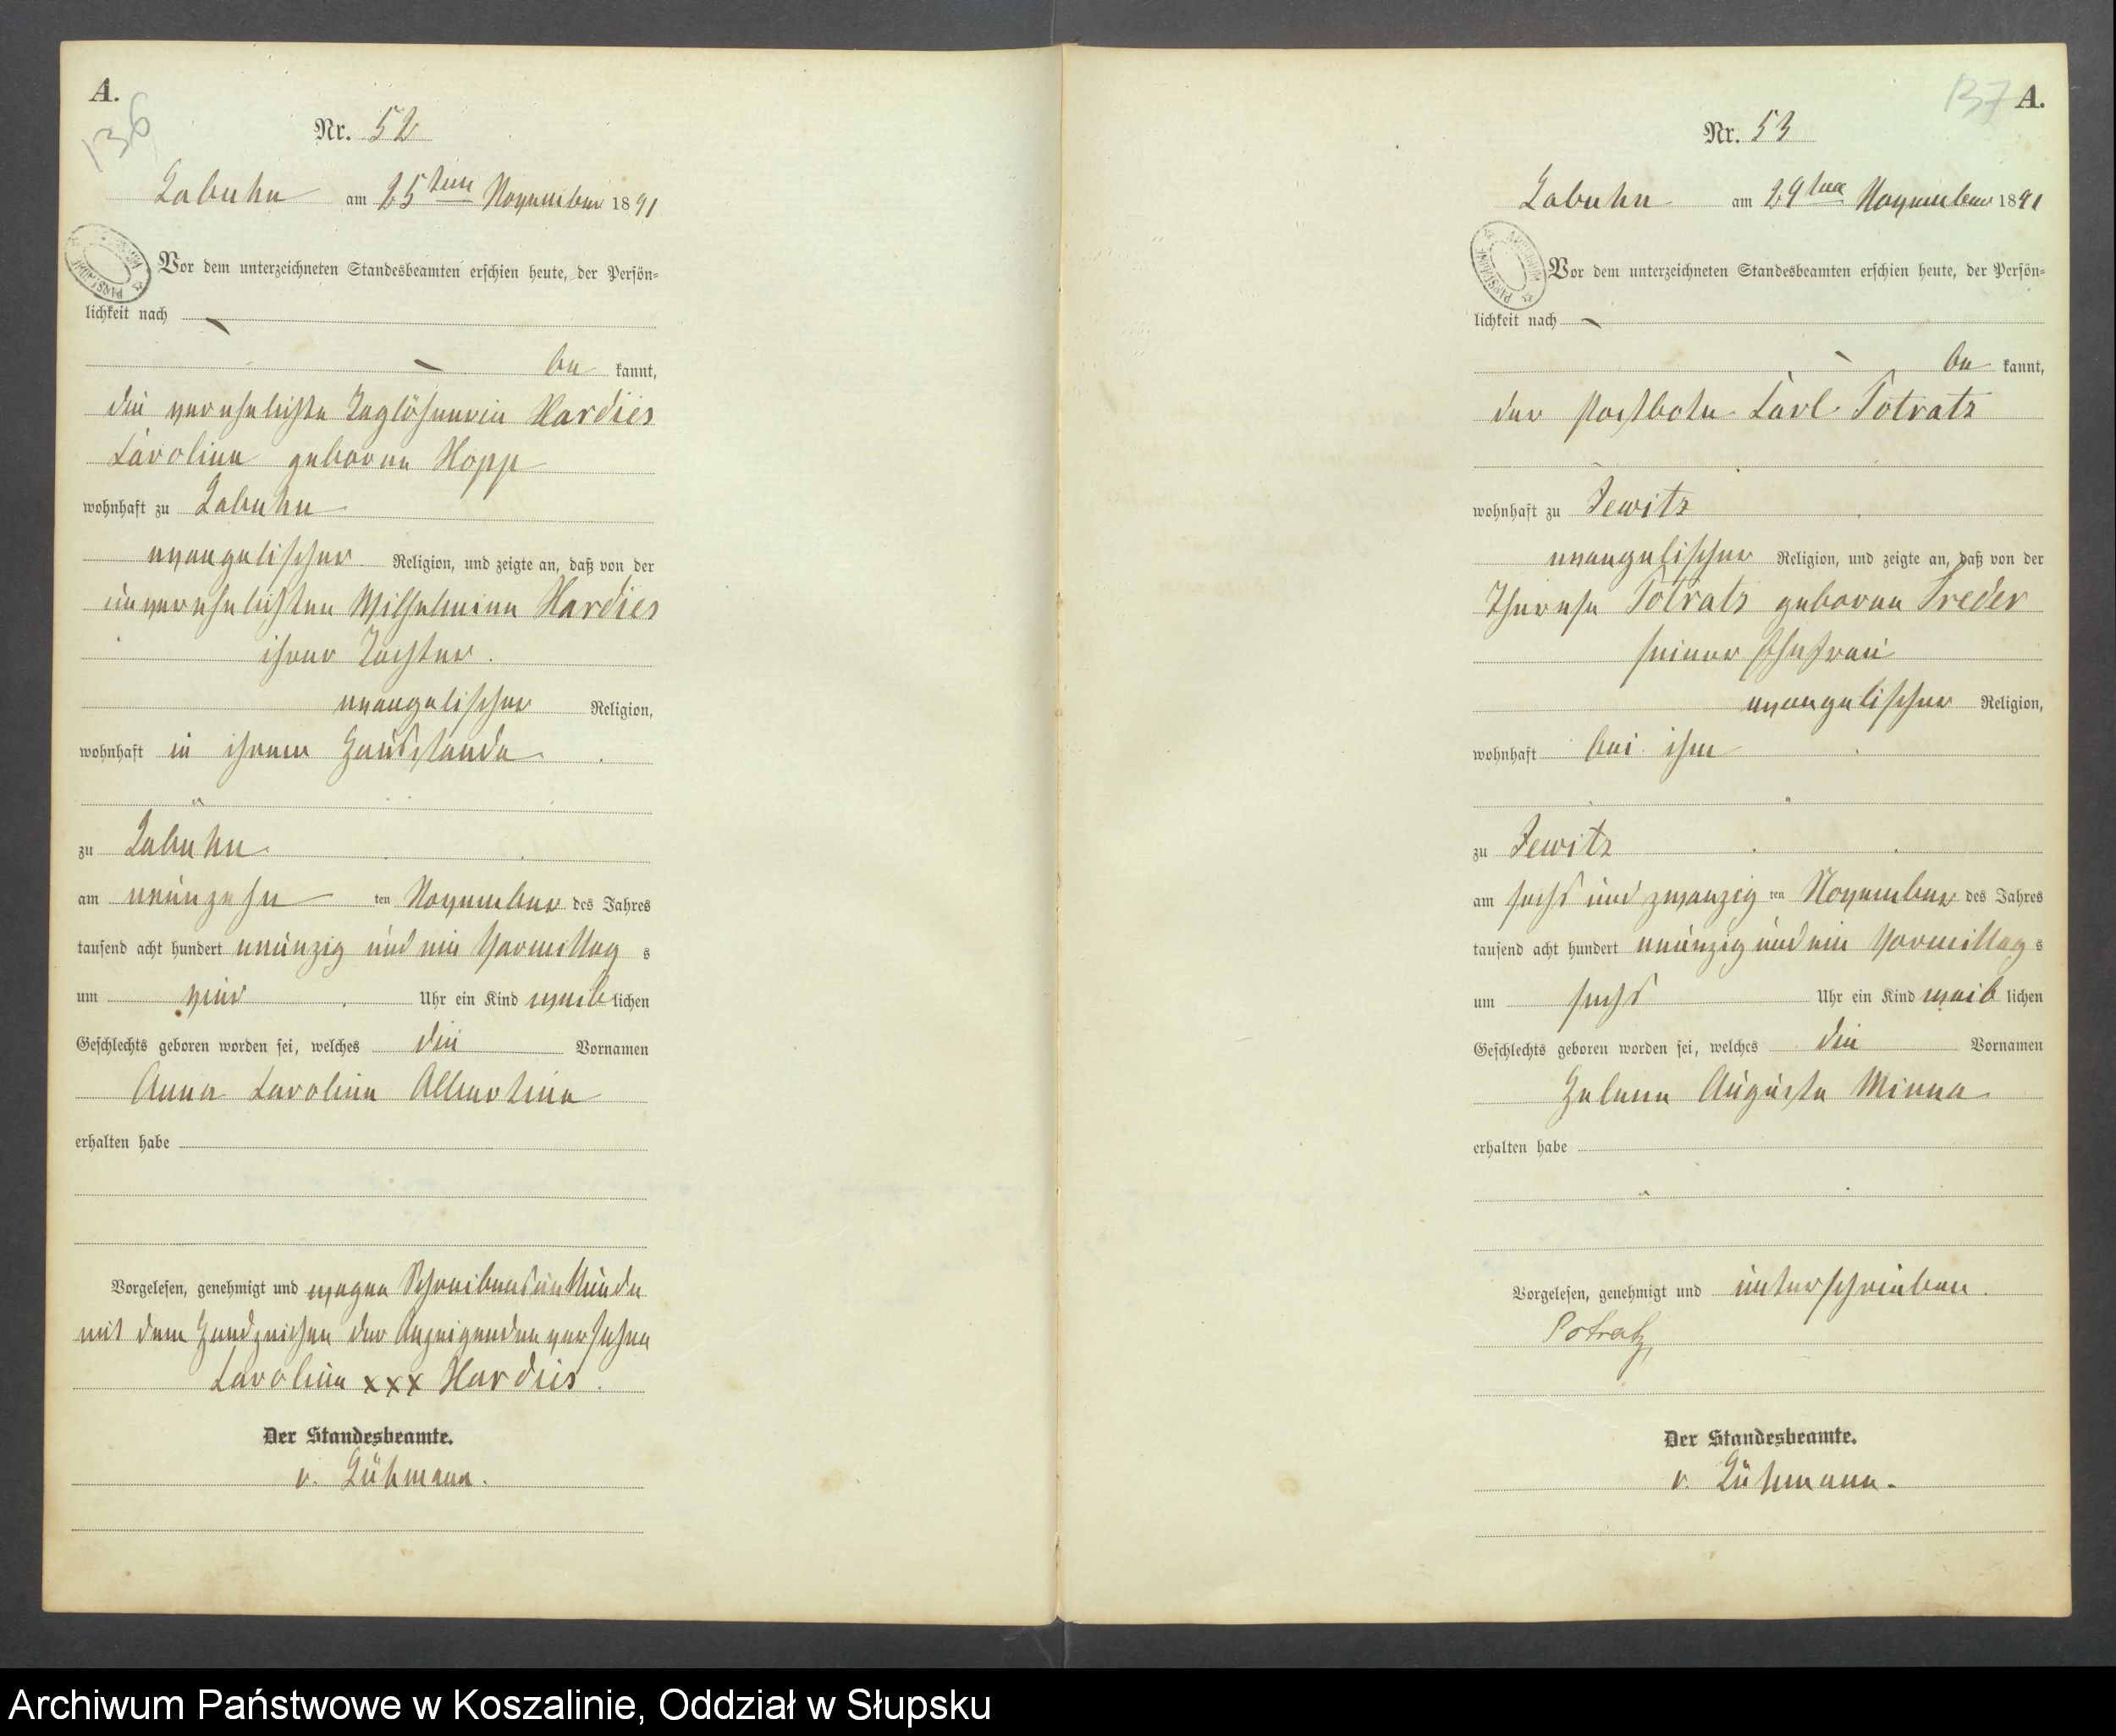 A.
136
Nr. 52
Labuhn am 25ten November 1891
Vor dem unterzeichneten Standesbeamten erschien heute, der Persön-
lichkeit nach
be kannt,
die verehelichte Taglöhnerin Hardies
Caroline geborne Hopp
wohnhaft zu Labuhn
evangelischer Religion, und zeigte an, daß von der
unverehelichten Wilhelmine Hardies
ihrer Tochter.
evangelischer Religion,
wohnhaft in ihrem Hausstande
zu Labuhn
am neunzehn ten November des Jahres
tausend acht hundert neunzig und ein Vormittag s
um vier Uhr ein Kind weib lichen
Geschlechts geboren worden sei, welches die Vornamen
Anna Caroline Albertine
erhalten habe
Vorgelesen, genehmigt und wegen Schreibensunkunde
mit dem Handzeichen der Anzeigenden versehen
Caroline xxx Hardies.
Der Standesbeamte.
v. Lühmann.
137 A.
Nr. 53
Labuhn am 29ten November 1891
Vor dem unterzeichneten Standesbeamten erschien heute, der Persön-
lichkeit nach
be kannt,
der Postbote Carl Potratz
wohnhaft zu Jewitz
evangelischer Religion, und zeigte an, daß von der
Therese Potratz geborne Treder
seiner Ehefrau
evangelischer Religion,
wohnhaft bei ihm
zu Jewitz
am sechs und zwanzig ten November des Jahres
tausend acht hundert neunzig und ein Vormittag s
um sechs Uhr ein Kind weib lichen
Geschlechts geboren worden sei, welches die Vornamen
Helene Auguste Minna
erhalten habe
Vorgelesen, genehmigt und unterschrieben.
Potratz,
Der Standesbeamte.
v. Lühmann.
Archiwum Państwowe w Koszalinie, Oddział w Słupsku